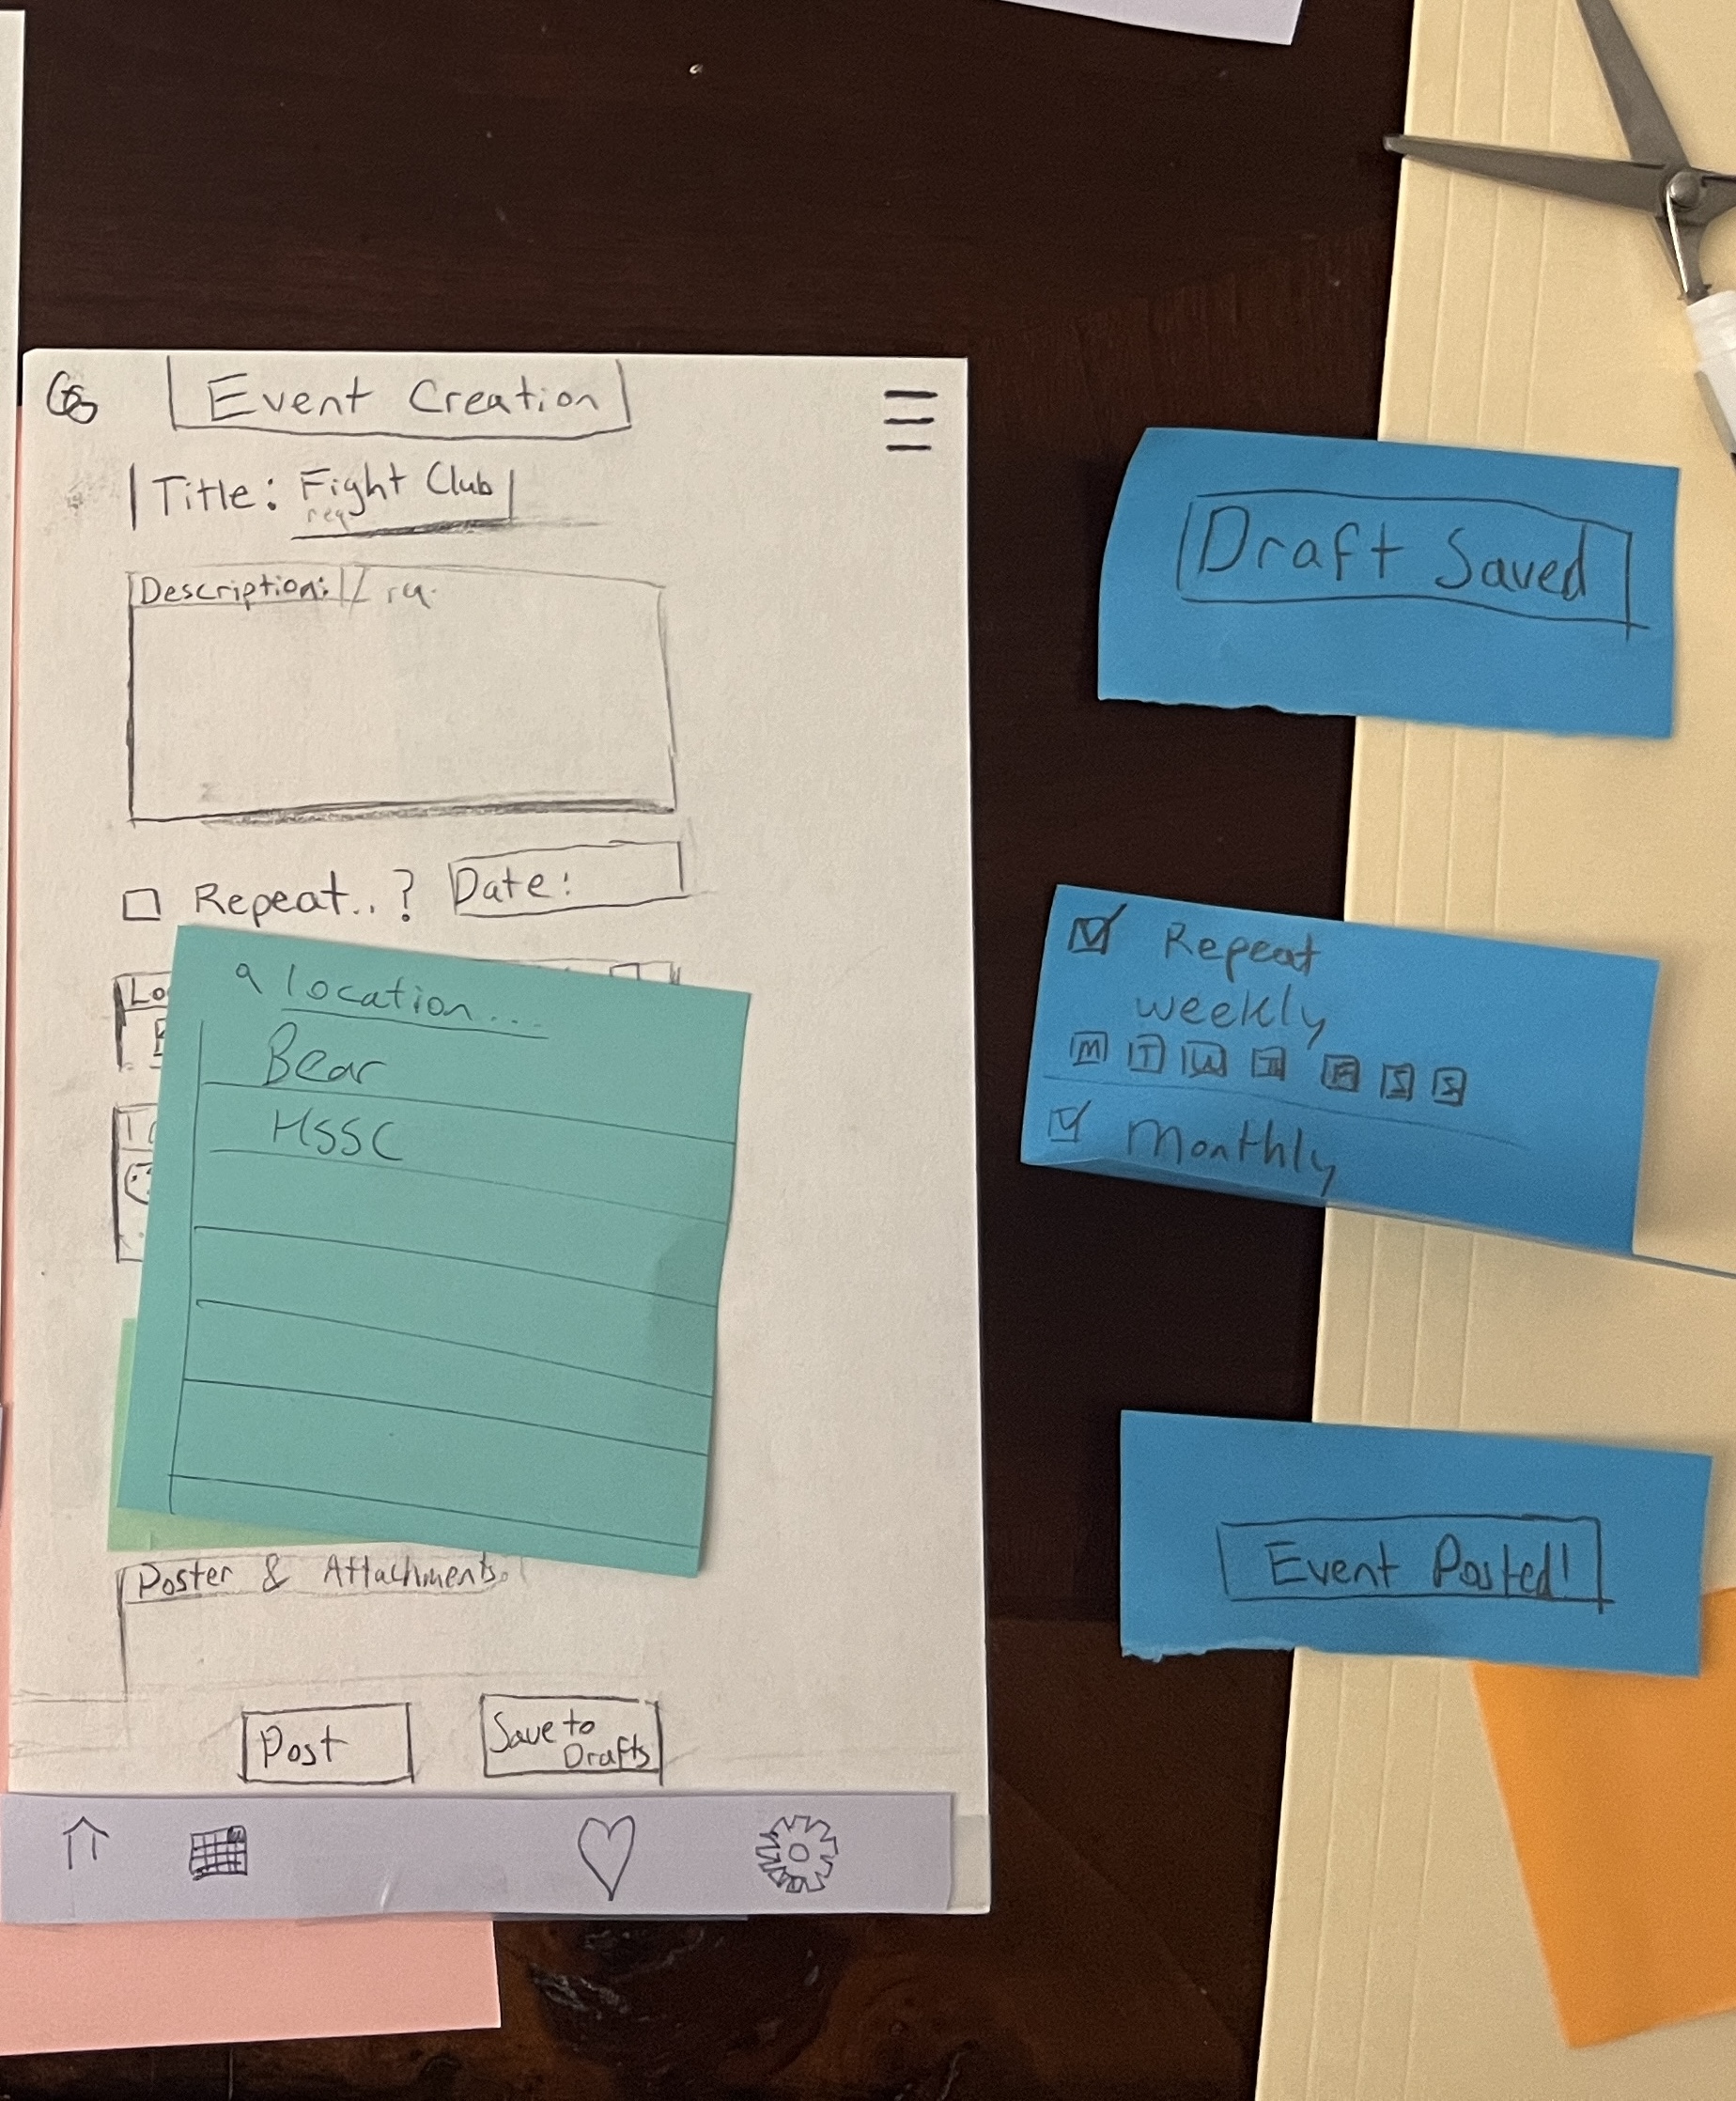 Event Creation
Title: Fight Club
req
Description:
Repeat..? Date:
Lo
location...
Bear
HSSC
Poster & Attachments
Post
Save to
Drafts
Draft Saved
Repeat
weekly
M T W T F S S
Monthly
Event Posted!